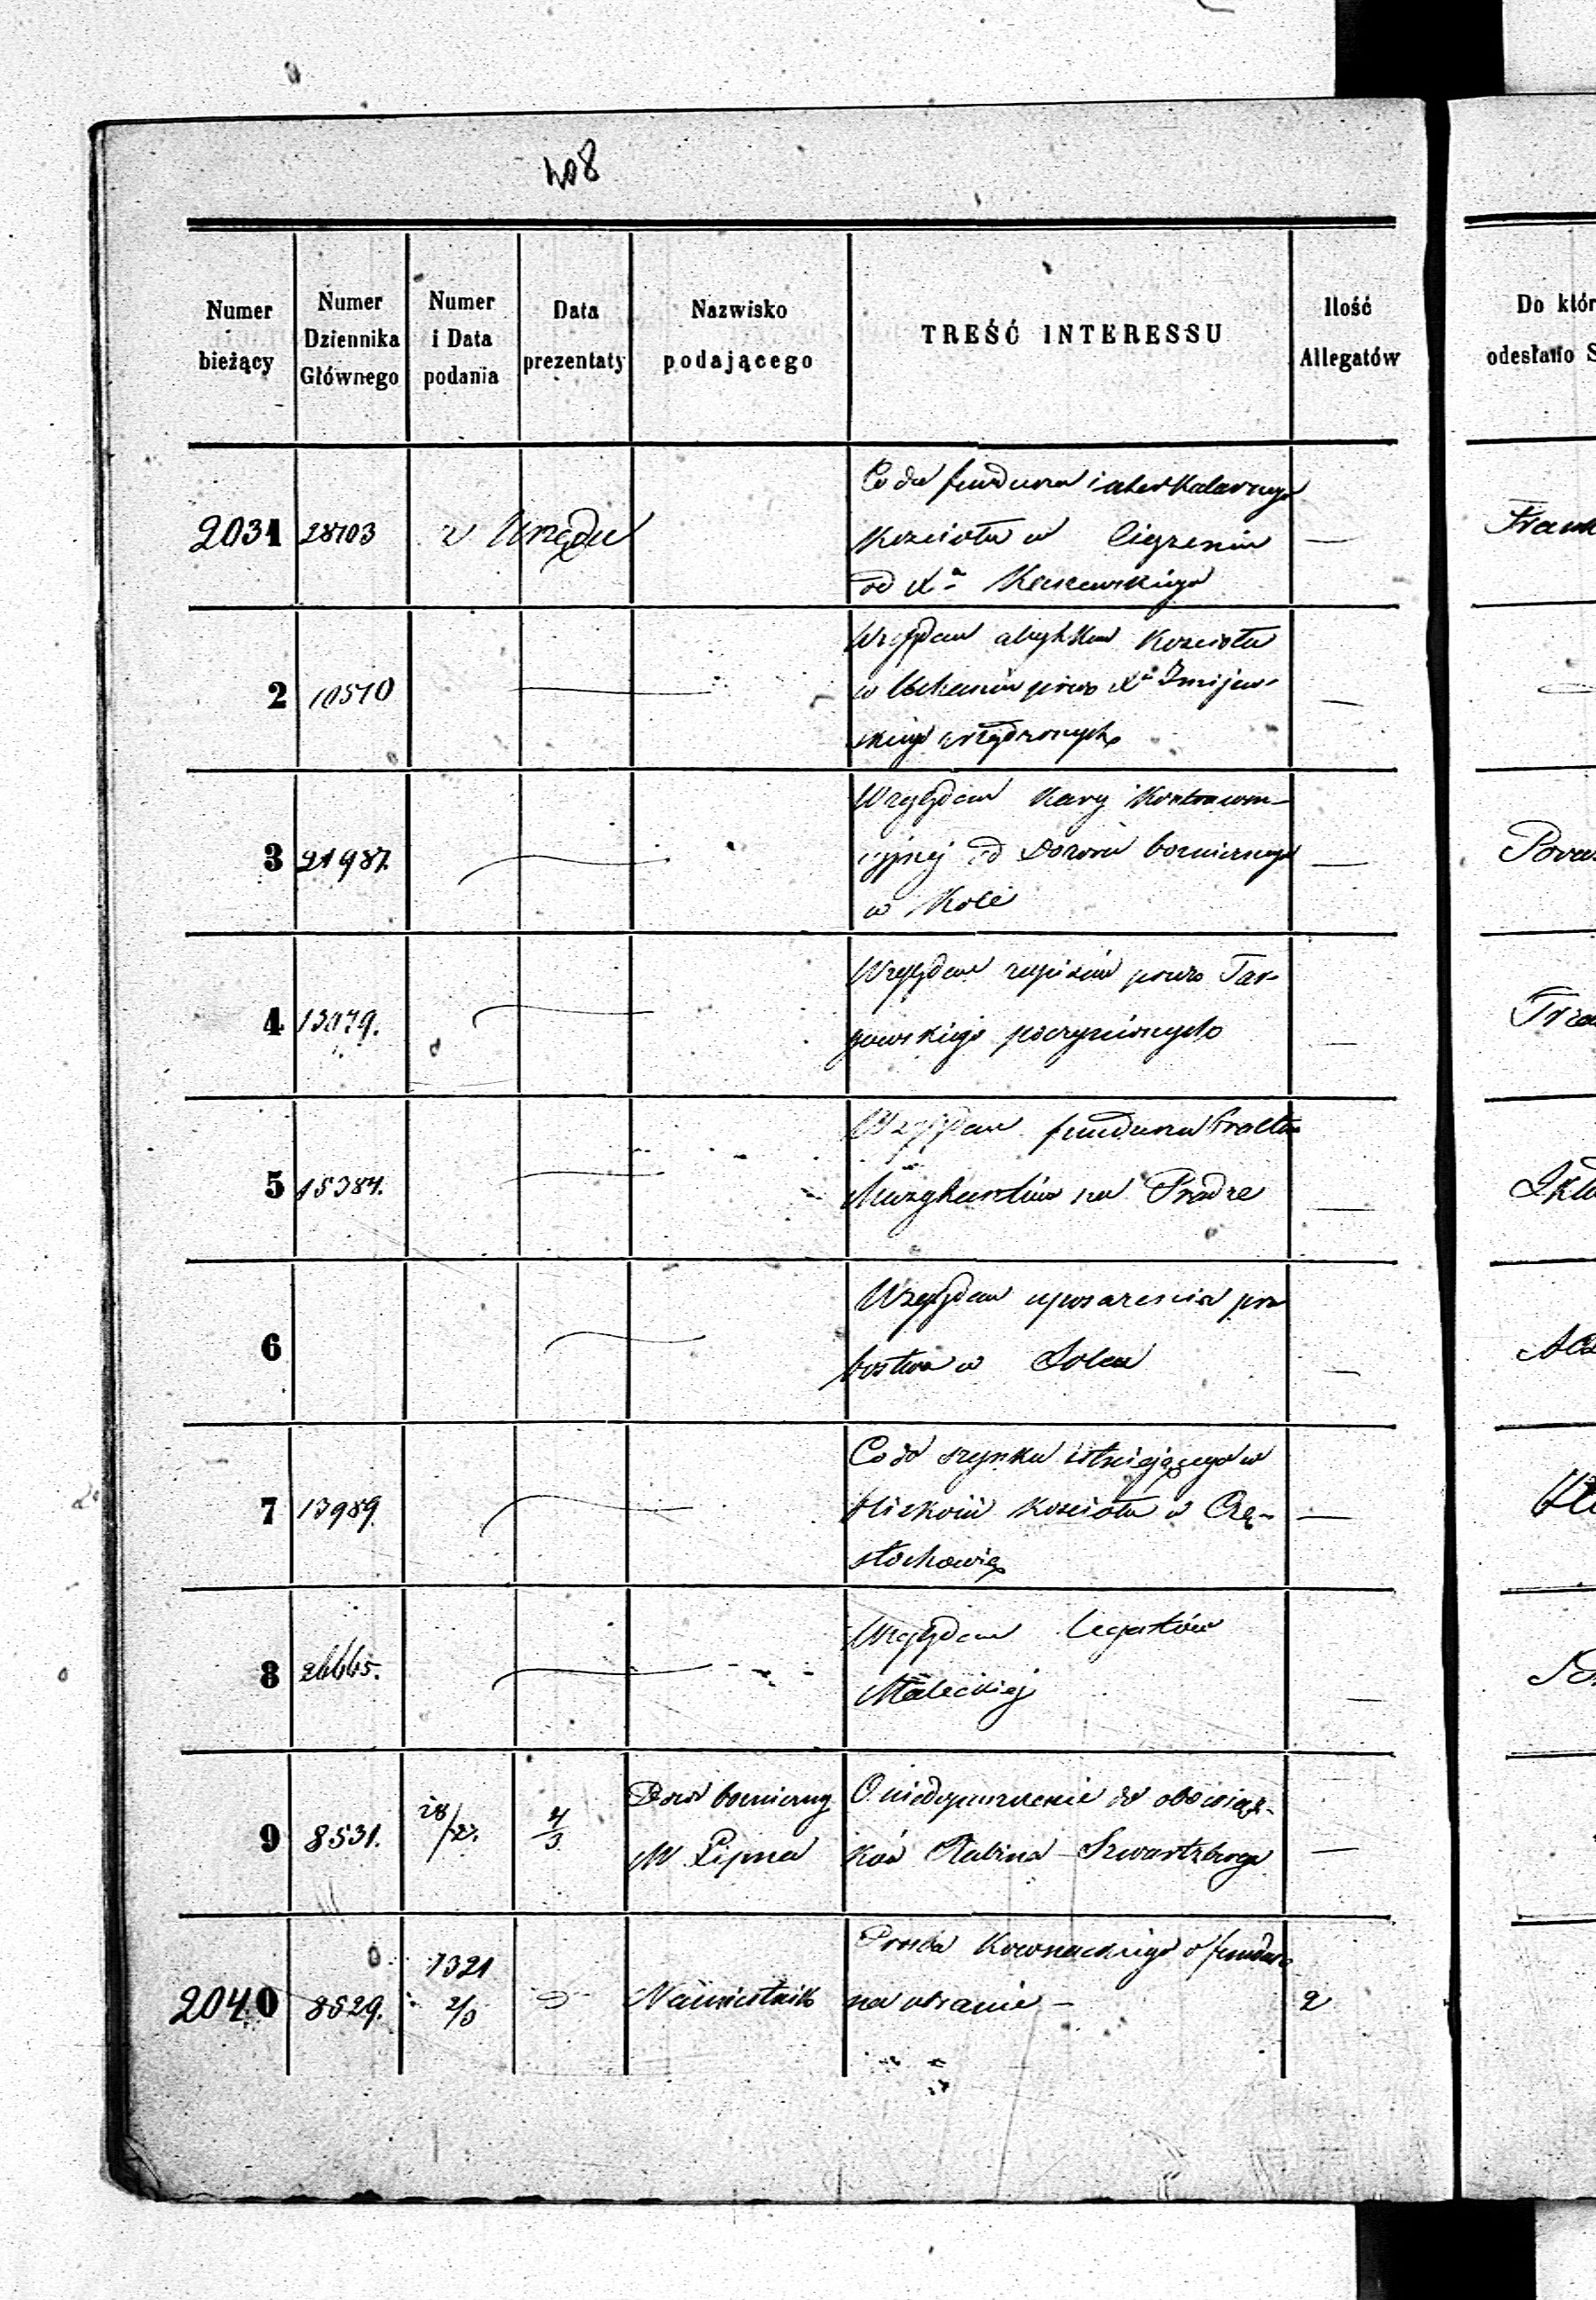 408
Numer bieżący
Numer Dziennika Głównego
Numer i Data podania
Data prezentaty
Nazwisko podającego
TREŚĆ INTERESSU
Ilość Allegatów
Do któr
odesłano S
2031 28703 z Urzędu
Co do funduszu interkalarnego
Kościoła w Ciążeniu —
od Xa
2 10510
Względem Kościoła
w przez Xa Żmijew-
skiego
3 21987.
Względem Kary Kontrawen-
cyjnej od Dozoru bożniczego —
w Kole
4 13079.
Względem zapisów przez Tar-
gowskiego poczynionych —
5 15384.
Względem funduszu Bractwa
na Pradze —
6
Względem uposażenia pro
bostwa w Solcu —
7 13989.
Co do szynku istniejącego w
bliskości Kościoła w Czę- —
stochowie
8 26665.
Względem legatów
Małeckiej —
9 8531. 28/2. 4/3
Dozór bożniczy
M Lipna
O niedopuszczenie do obowiąz-
ków Rabina Szwartzberga —
2040 8529. 1321 2/3
Namiestnik
Prośba Kownackiego o fundusz
na ubranie — 2